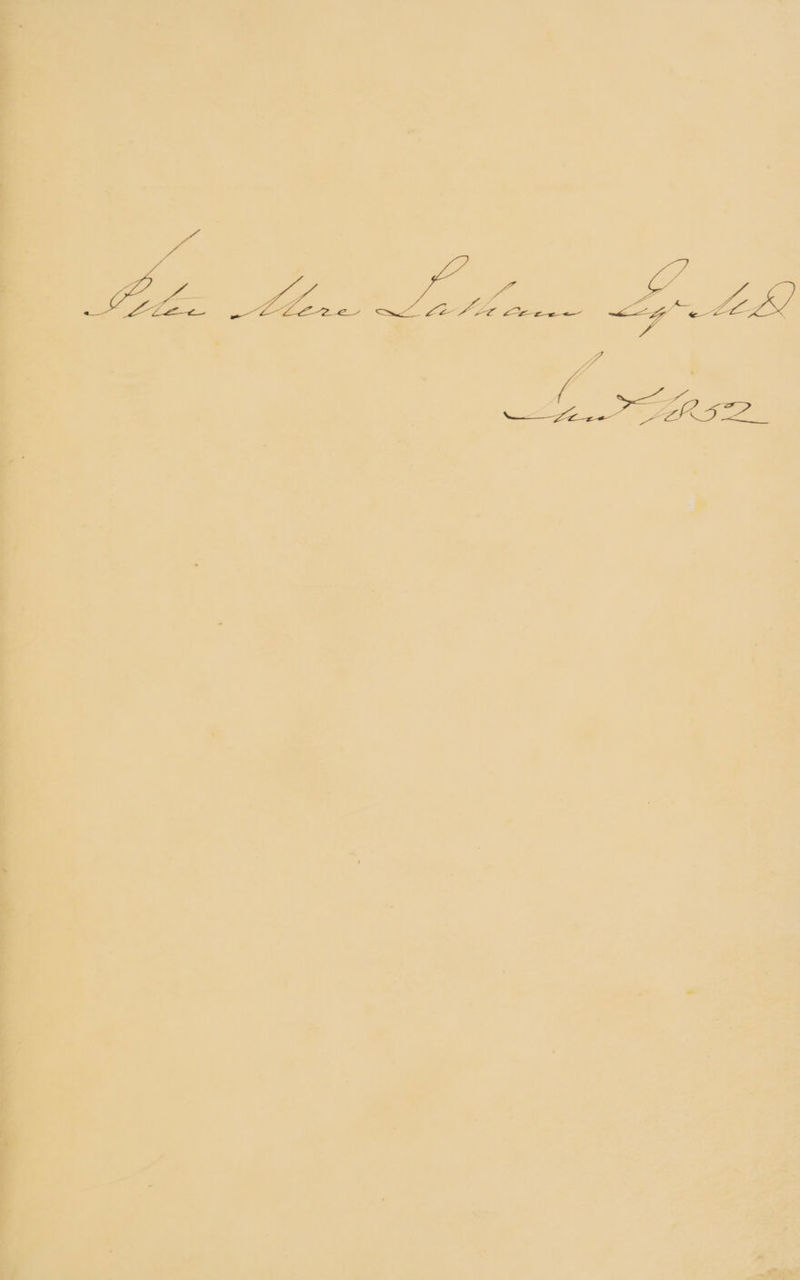 Peter Mere Latham Esq. MD
Jany 1852